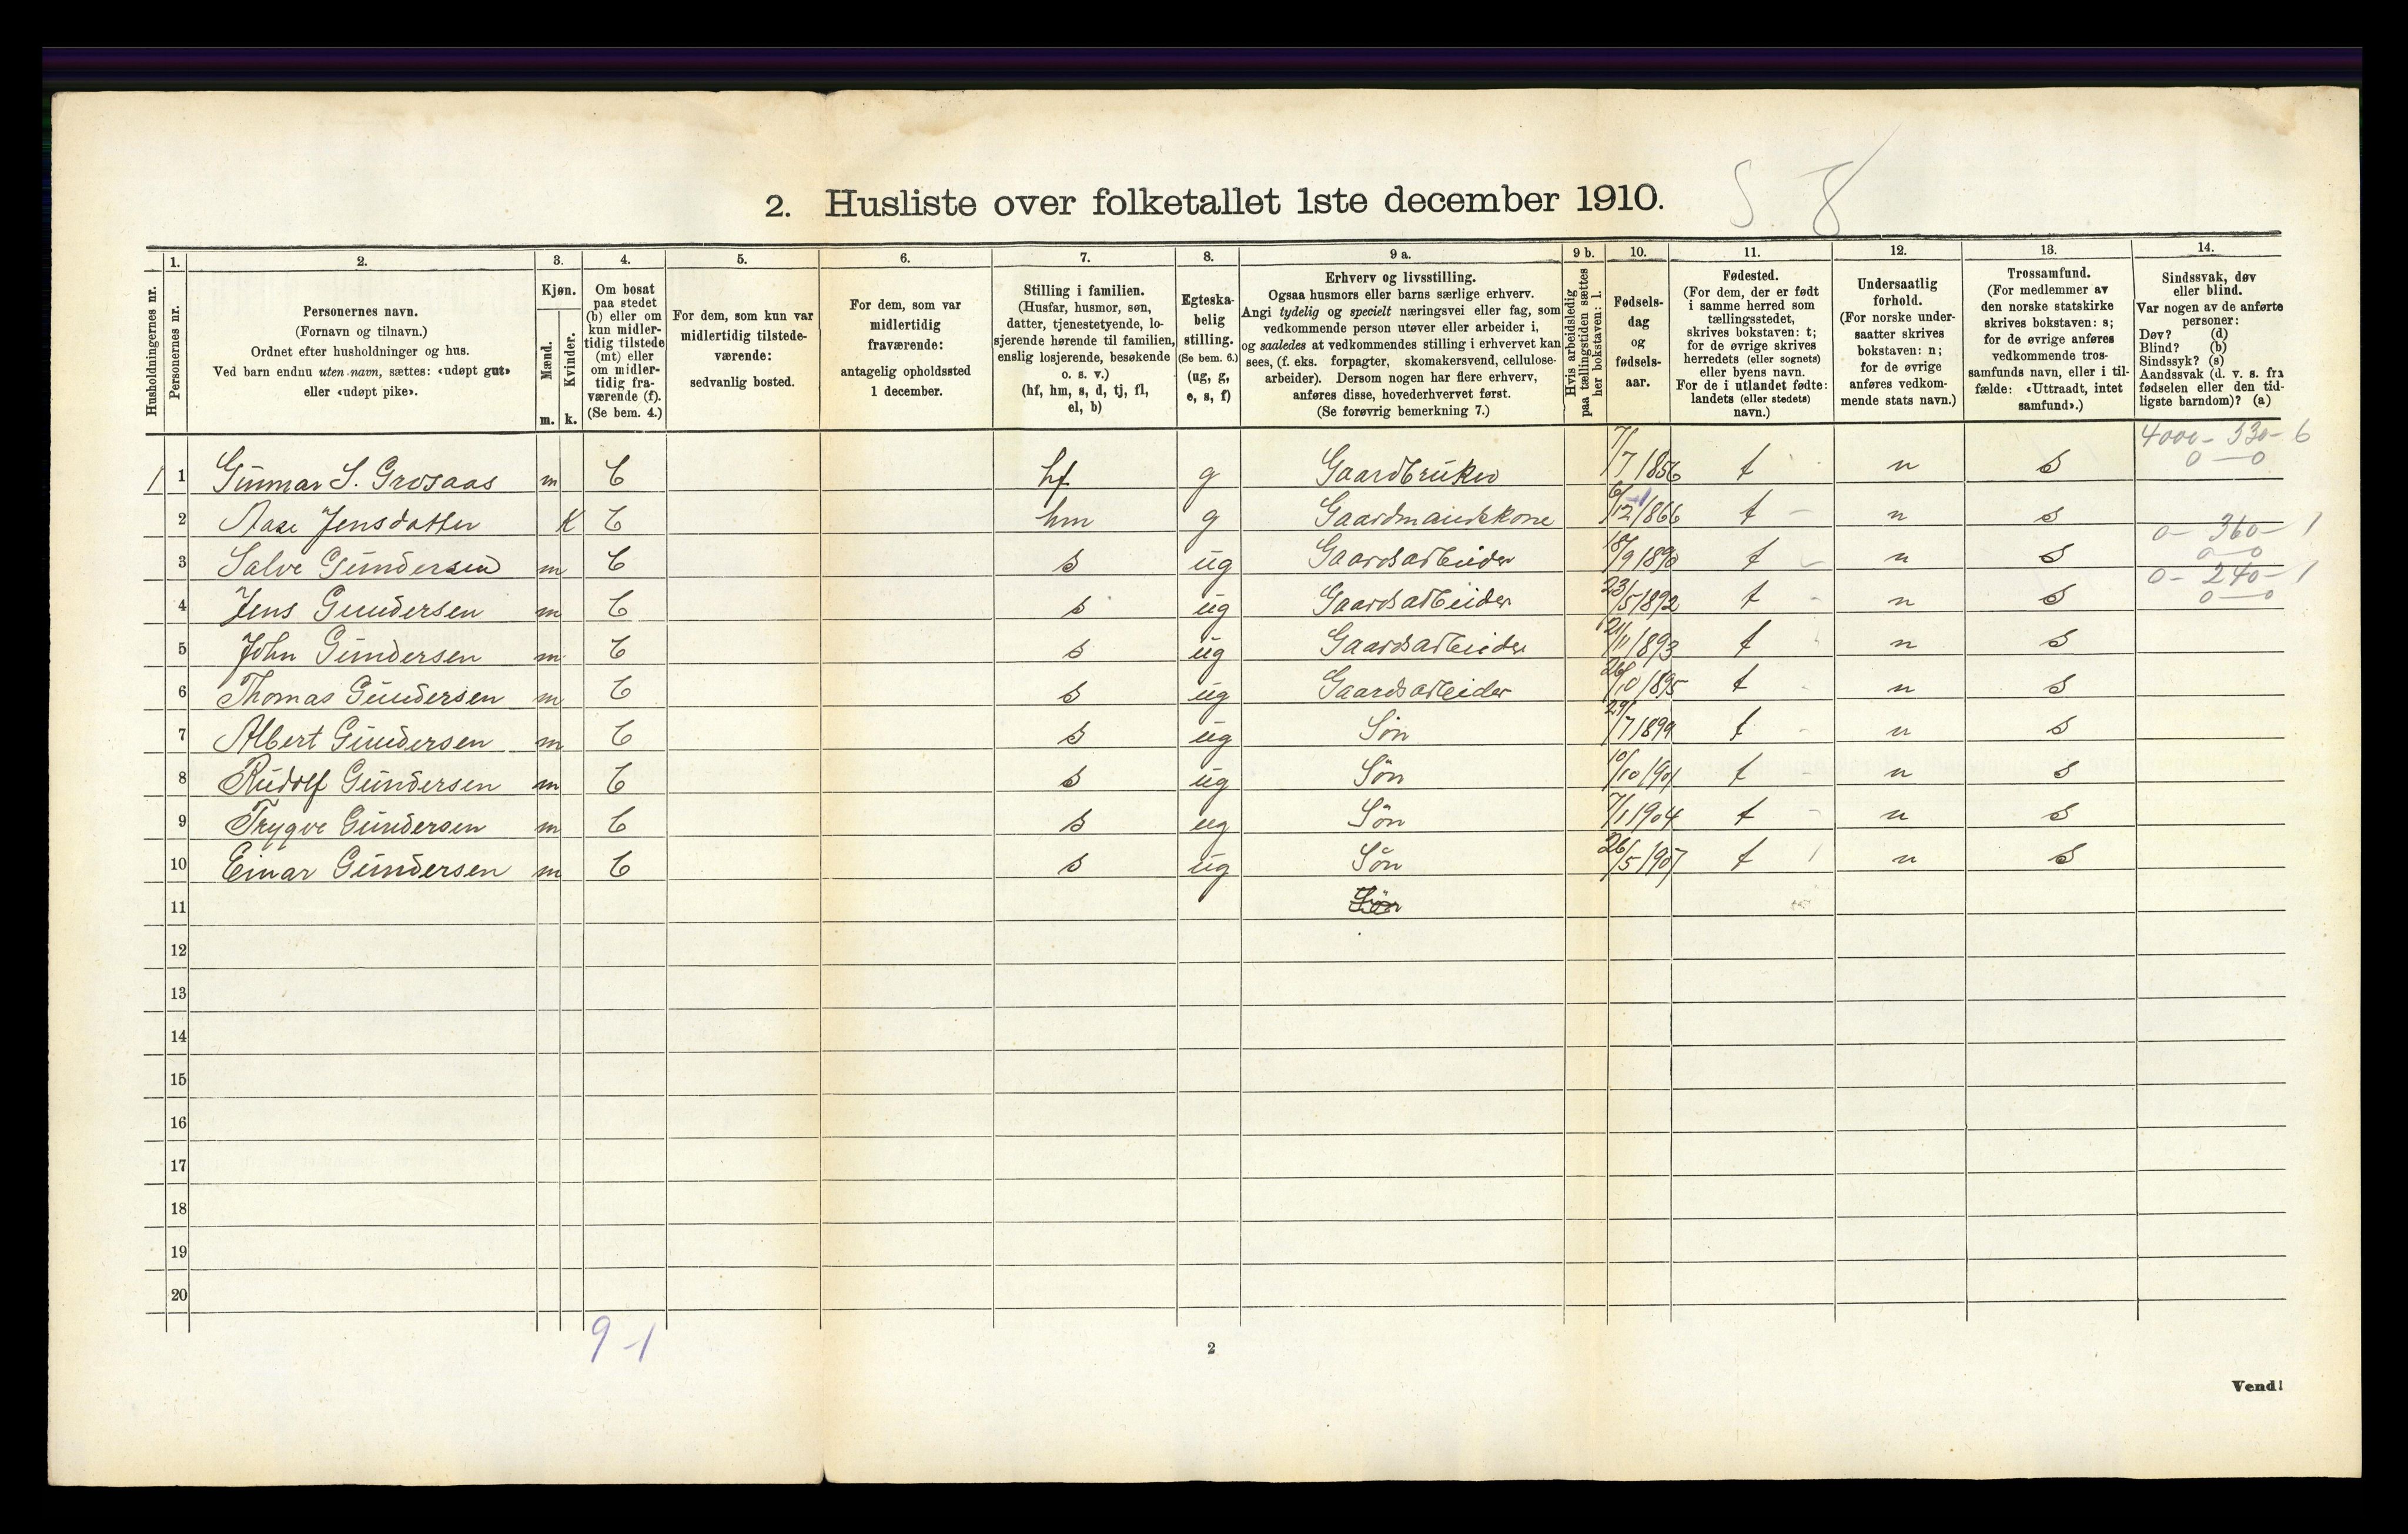 2. Husliste over folketallet 1ste december 1910. S. 8
Husholdningernes nr.
1. Personernes nr.
2. Personernes navn. (Fornavn og tilnavn.) Ordnet efter husholdninger og hus. Ved barn endnu uten navn, sættes: «udøpt gut» eller «udøpt pike».
3. Kjøn. Mænd. m. Kvinder. k.
4. Om bosat paa stedet (b) eller om kun midlertidig tilstede (mt) eller om midlertidig fraværende (f). (Se bem. 4.)
5. For dem, som kun var midlertidig tilstedeværende: sedvanlig bosted.
6. For dem, som var midlertidig fraværende: antagelig opholdssted 1 december.
7. Stilling i familien. (Husfar, husmor, søn, datter, tjenestetyende, losjerende hørende til familien, enslig losjerende, besøkende o. s. v.) (hf, hm, s, d, tj, fl, el, b)
8. Egteskabelig stilling. (Se bem. 6.) (ug, g, e, s, f)
9 a. Erhverv og livsstilling. Ogsaa husmors eller barns særlige erhverv. Angi tydelig og specielt næringsvei eller fag, som vedkommende person utøver eller arbeider i, og saaledes at vedkommendes stilling i erhvervet kan sees, (f. eks. forpagter, skomakersvend, cellulosearbeider). Dersom nogen har flere erhverv, anføres disse, hovederhvervet først. (Se forøvrig bemerkning 7.)
9 b. Hvis arbeidsledig paa tællingstiden sættes her bokstaven: l.
10. Fødselsdag og fødselsaar.
11. Fødested. (For dem, der er født i samme herred som tællingsstedet, skrives bokstaven: t; for de øvrige skrives herredets (eller sognets) eller byens navn. For de i utlandet fødte: landets (eller stedets) navn.)
12. Undersaatlig forhold. (For norske undersaatter skrives bokstaven: n; for de øvrige anføres vedkommende stats navn.)
13. Trossamfund. (For medlemmer av den norske statskirke skrives bokstaven: s; for de øvrige anføres vedkommende trossamfunds navn, eller i tilfælde: «Uttraadt, intet samfund».)
14. Sindssvak, døv eller blind. Var nogen av de anførte personer: Døv? (d) Blind? (b) Sindssyk? (s) Aandssvak (d. v. s. fra fødselen eller den tidligste barndom)? (a)
4000 - 330 - 6
1 1 Gunnar S. Grosaas m b hf g Gaardbruker 7/7 1856 t n s 0 - 0
2 Aase Jensdatter K b hm g Gaardmandskone 6/12 1866 t n s
0 - 360 - 1
3 Salve Gundersen m b s ug Gaardsarbeider 18/9 1890 t n s 0 - 0
0 - 240 - 1
4 Jens Gundersen m b s ug Gaardsarbeider 23/5 1892 t n s 0 - 0
5 John Gundersen m b s ug Gaardsarbeider 21/11 1893 t n s
6 Thomas Gundersen m b s ug Gaardsarbeider 26/10 1895 t n s
7 Albert Gundersen m b s ug Søn 29/7 1899 t n s
8 Rudolf Gundersen m b s ug Søn 10/10 1901 t n s
9 Trygve Gundersen m b s ug Søn 7/1 1904 t n s
10 Einar Gundersen m b s ug Søn 26/5 1907 t n s
11 Søn
12
13
14
15
16
17
18
19
20
9 - 1
2
Vend!